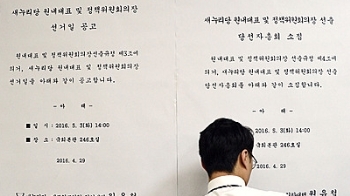 새누리당 원내대표 및 정책위원회의장
선거일 공고
원내대표 및 정책위원회의장선출규정 제3조에
의거, 새누리당 원내대표 및 정책위원회의장
선거일을 아래와 같이 공고합니다.
- 아 래 -
■ 일 시 : 2016. 5. 3(화) 14:00
■ 장 소 : 국회본관 246호실
2016. 4. 29
새누리당 원내대표 및 정책위원회의장 선출
당선자총회 소집
원내대표 및 정책위원회의장선출규정 제4조에
의거, 새누리당 원내대표 및 정책위원회의장 선출
당선자총회를 아래와 같이 소집합니다.
- 아 래 -
2016. 5. 3(화) 14:00
국회본관 246호실
4. 29